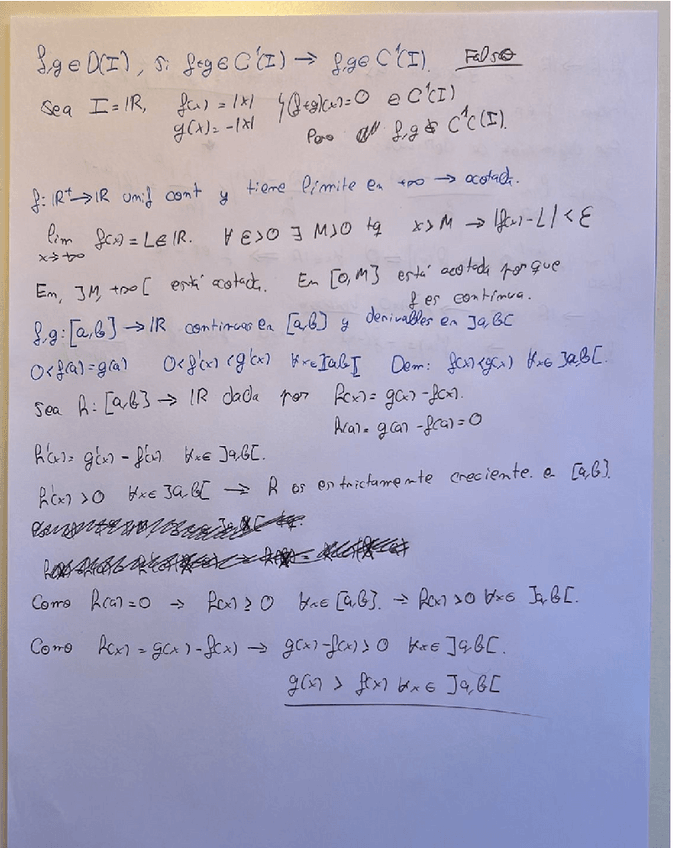 f,g ∈ D(I), si f+g ∈ C¹(I) → f,g ∈ C¹(I). Falso
Sea I = IR, f(x) = |x| (f+g)(x) = 0 ∈ C¹(I)
g(x) = -|x| Pero f,g ∉ C¹(I).
f: IR⁺ → IR unif cont y tiene límite en +∞ → acotada.
lim f(x) = L ∈ IR. ∀ ε>0 ∃ M>0 tq x>M → |f(x) - L| < ε
x→+∞
En, ]M, +∞[ está acotada. En [0,M] está acotada porque
f es continua.
f,g: [a,b] → IR continuas en [a,b] y derivables en ]a,b[
0<f(a) = g(a) 0<f'(x) < g'(x) ∀x∈]a,b[ Dem: f(x)<g(x) ∀x∈ ]a,b[.
Sea h: [a,b] → IR dada por h(x) = g(x) - f(x).
h(a) = g(a) - f(a) = 0
h'(x) = g'(x) - f'(x) ∀x∈ ]a,b[.
h'(x) > 0 ∀x∈ ]a,b[ → h es estrictamente creciente. en [a,b].
Como h(a) = 0 → h(x) ≥ 0 ∀x∈ [a,b]. → h(x) > 0 ∀x∈ ]a,b[.
Como h(x) = g(x) - f(x) → g(x) - f(x) > 0 ∀x∈ ]a,b[.
g(x) > f(x) ∀x∈ ]a,b[